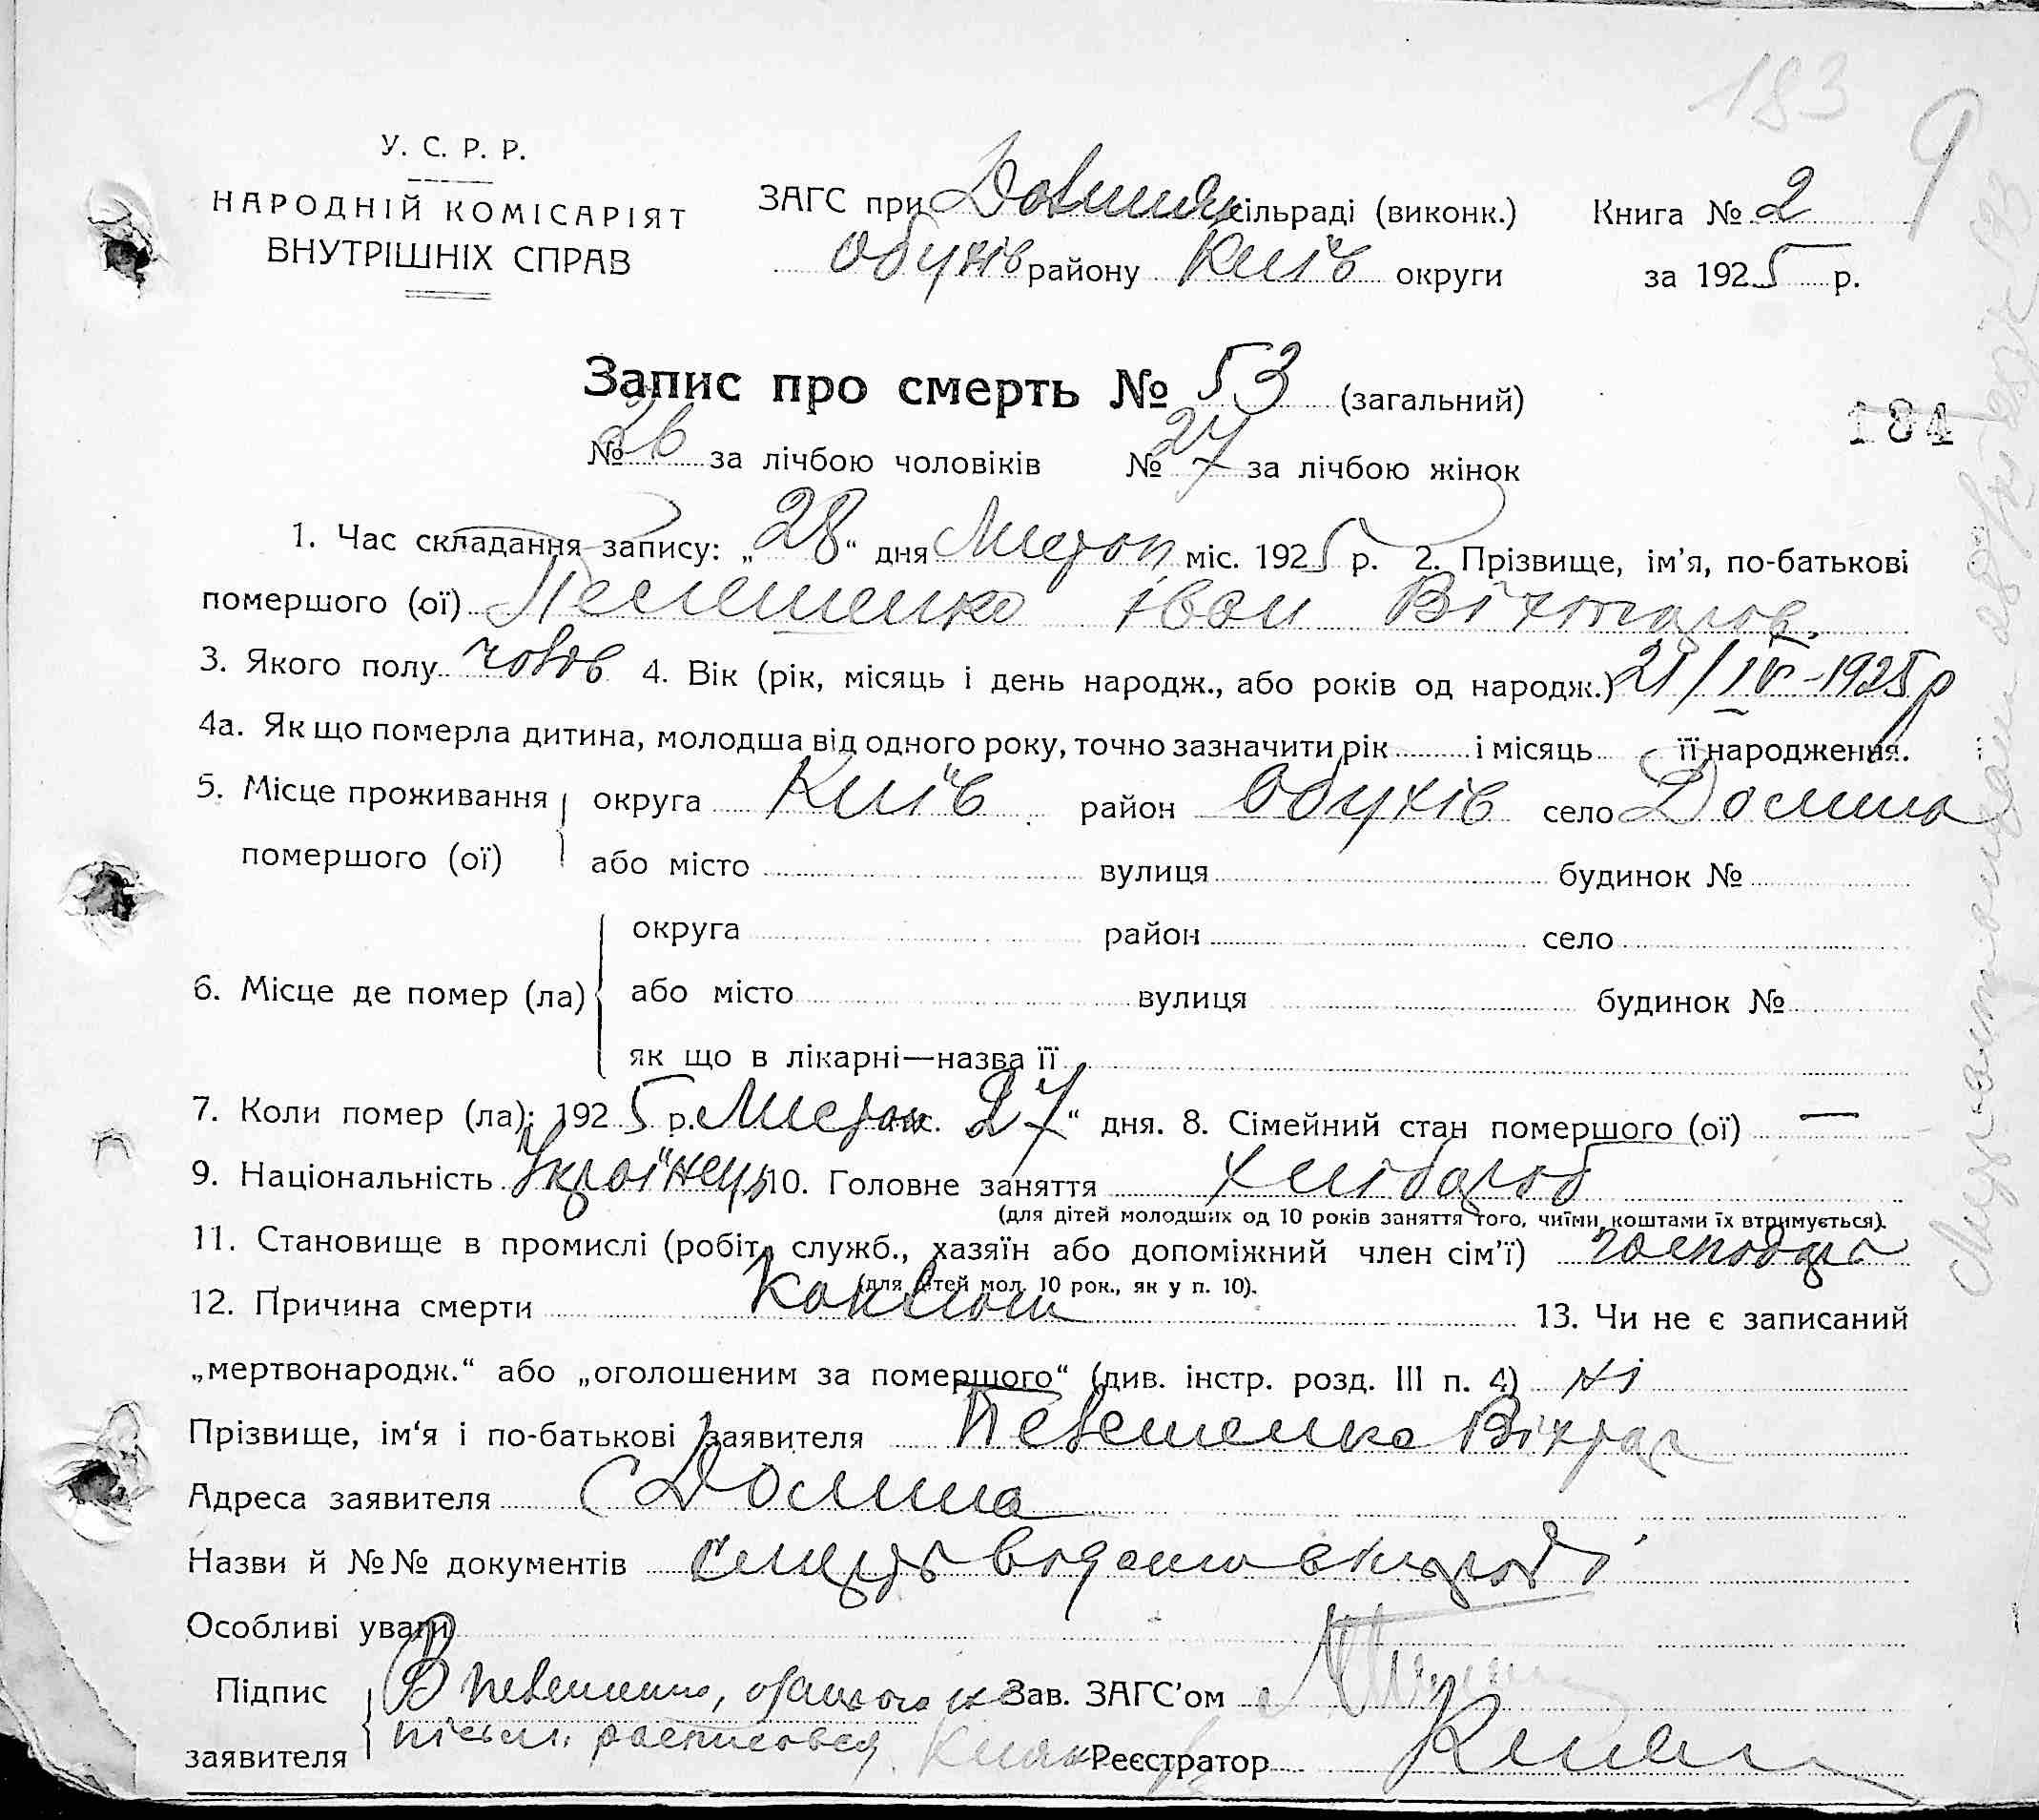 183
9
У. С. Р. Р.
НАРОДНІЙ КОМІСАРІЯТ
ВНУТРІШНІХ СПРАВ
ЗАГС при сільраді (виконк.)
Обухів району Київ округи
Книга № 2
за 1925 р.
Запис про смерть № 53 (загальний)
184
№ 26 за лічбою чоловіків № 27 за лічбою жінок
1. Час складання запису: „28“ дня Листоп. міс. 1925 р. 2. Прізвище, ім’я, по-батькові
помершого (ої) Іван Вікторов.
3. Якого полу чолов 4. Вік (рік, місяць і день народж., або років од народж.) 21/IV-1925р
4а. Як що померла дитина, молодша від одного року, точно зазначити рік і місяць її народження.
5. Місце проживання округа Київ район Обухів село Долина
помершого (ої) або місто вулиця будинок №
округа район село
6. Місце де помер (ла) або місто вулиця будинок №
як що в лікарні—назва її
7. Коли помер (ла): 1925 р. Листоп. 27“ дня. 8. Сімейний стан помершого (ої) —
9. Національність Українець 10. Головне заняття хлібороб
(для дітей молодших од 10 років заняття того, чиїми коштами їх втримується).
11. Становище в промислі (робіт., служб., хазяїн або допоміжний член сім’ї) господар
(для дітей мол. 10 рок., як у п. 10).
12. Причина смерти Коклюш 13. Чи не є записаний
„мертвонародж.“ або „оголошеним за помершого“ (див. інстр. розд. III п. 4) ні
Прізвище, ім‘я і по-батькові заявителя Віктор
Адреса заявителя с Долина
Назви й №№ документів
Особливі уваги
Підпис
заявителя
Зав. ЗАГС’ом
Реєстратор